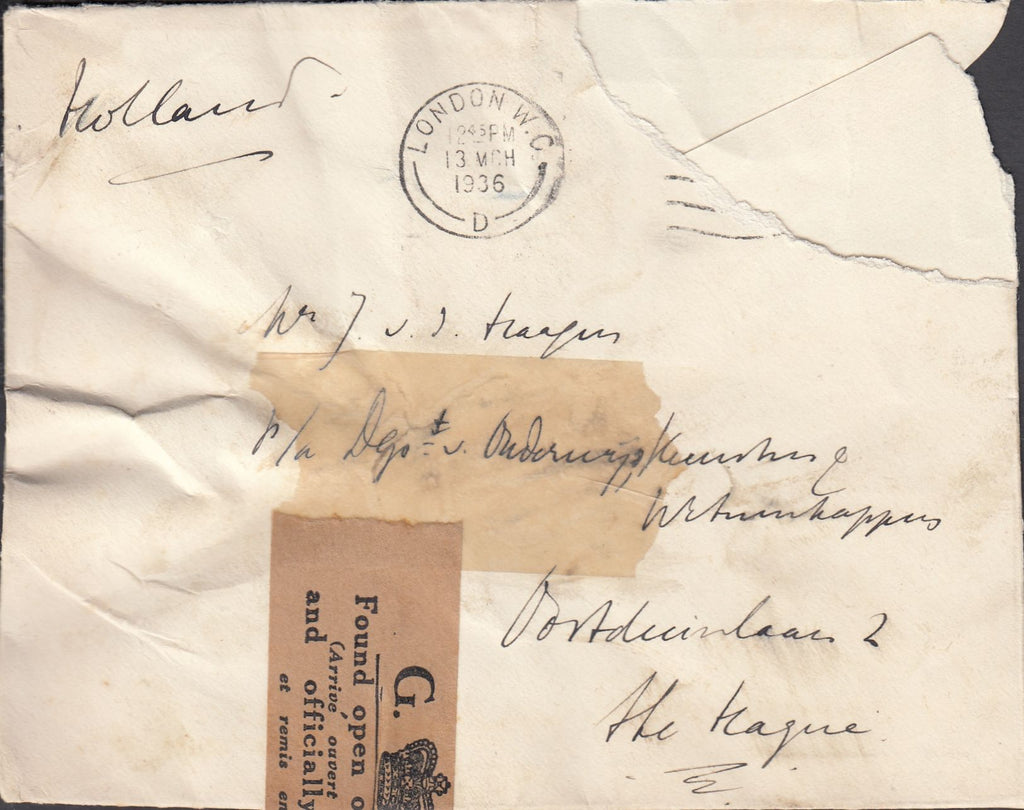 Holland
LONDON W.C.
12 45 PM
13 MCH
1936
D
Mr J. v. d. Haagen
p/a Dept v. Onderwijs, Kunsten &
Wetenschappen
Oostduinlaan 2
The Hague
G.
Found open o
(Arrivé ouvert
and officially
et remis en